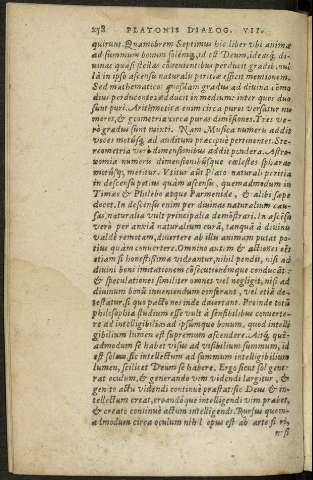 238 PLATONIS DIALOG. VII.
quirunt. Quamobrem Septimus hic liber vbi animã
ad summum bonum solémq́, id est Deum, ideasq́, di-
uinas quasi stellas cõtuentibus perducit gradib. nul-
lã in ipso ascensu naturalis peritiæ efficit mentionem.
Sed mathematicos quosdam gradus ad diuina cõmo
dius perducentes adducit in medium: inter quos duo
sunt puri. Arithmetica enim circa puros versatur nu
meros, & geometria circa puras dimẽsiones. Tres ve-
rò gradus sunt mixti. Nam Musica numeris addit
voces motúsq, ad auditum præcipuè pertinentes. Ste-
reometria verò dimensionibus addit pondera. Astro-
nomia numeris dimensionibúsque cœlestes sphæras
motúsq, meritur. Vtitur aũt Plato naturali peritia
in descensu potius quàm ascensu, quemadmodum in
Timæo & Philebo atque Parmenide, & alibi sæpe
docet. In descensu enim per diuinas naturalium cau-
sas, naturalia vult principalia demõstrari. In ascẽsu
verò per anxiã naturalium curã, tanquã à diuinis
valdè remotam, diuertere ab illis animam putat po-
tius quàm conuertere. Omnino autem & actiones
etiam si honestissimæ videantur, nihil pendit, nisi ad
diuini boni imitationem cõsecutionémque conducãt:
& speculationes similiter omnes vel negligit, nisi ad
diuinum bonũ inueniendum conferant, vel etiã de-
testatur, si quo pacto nos inde diuertant. Proinde totũ
philosophiæ studium esse vult à sensibilibus conuerte-
re ad intelligibilia: ad ipsúmque bonum, quod intelli
gibilium lumen est supremum ascendere. Atq́, quẽ-
admodum se habet visus ad visibilium summum, id
est solem, sic intellectum ad summum intelligibilium
lumen, scilicet Deum se habere. Ergo sicut sol gene-
rat oculum, & generando vim videndi largitur, &
genito actũ videndi continuè præstat: sic Deus & in-
tellectum creat, creandóque intelligendi vim præbet,
& creato continuè actum intelligendi. Rursus quem-
admodum circa oculum nihil opus est ab arte fieri,
nisi